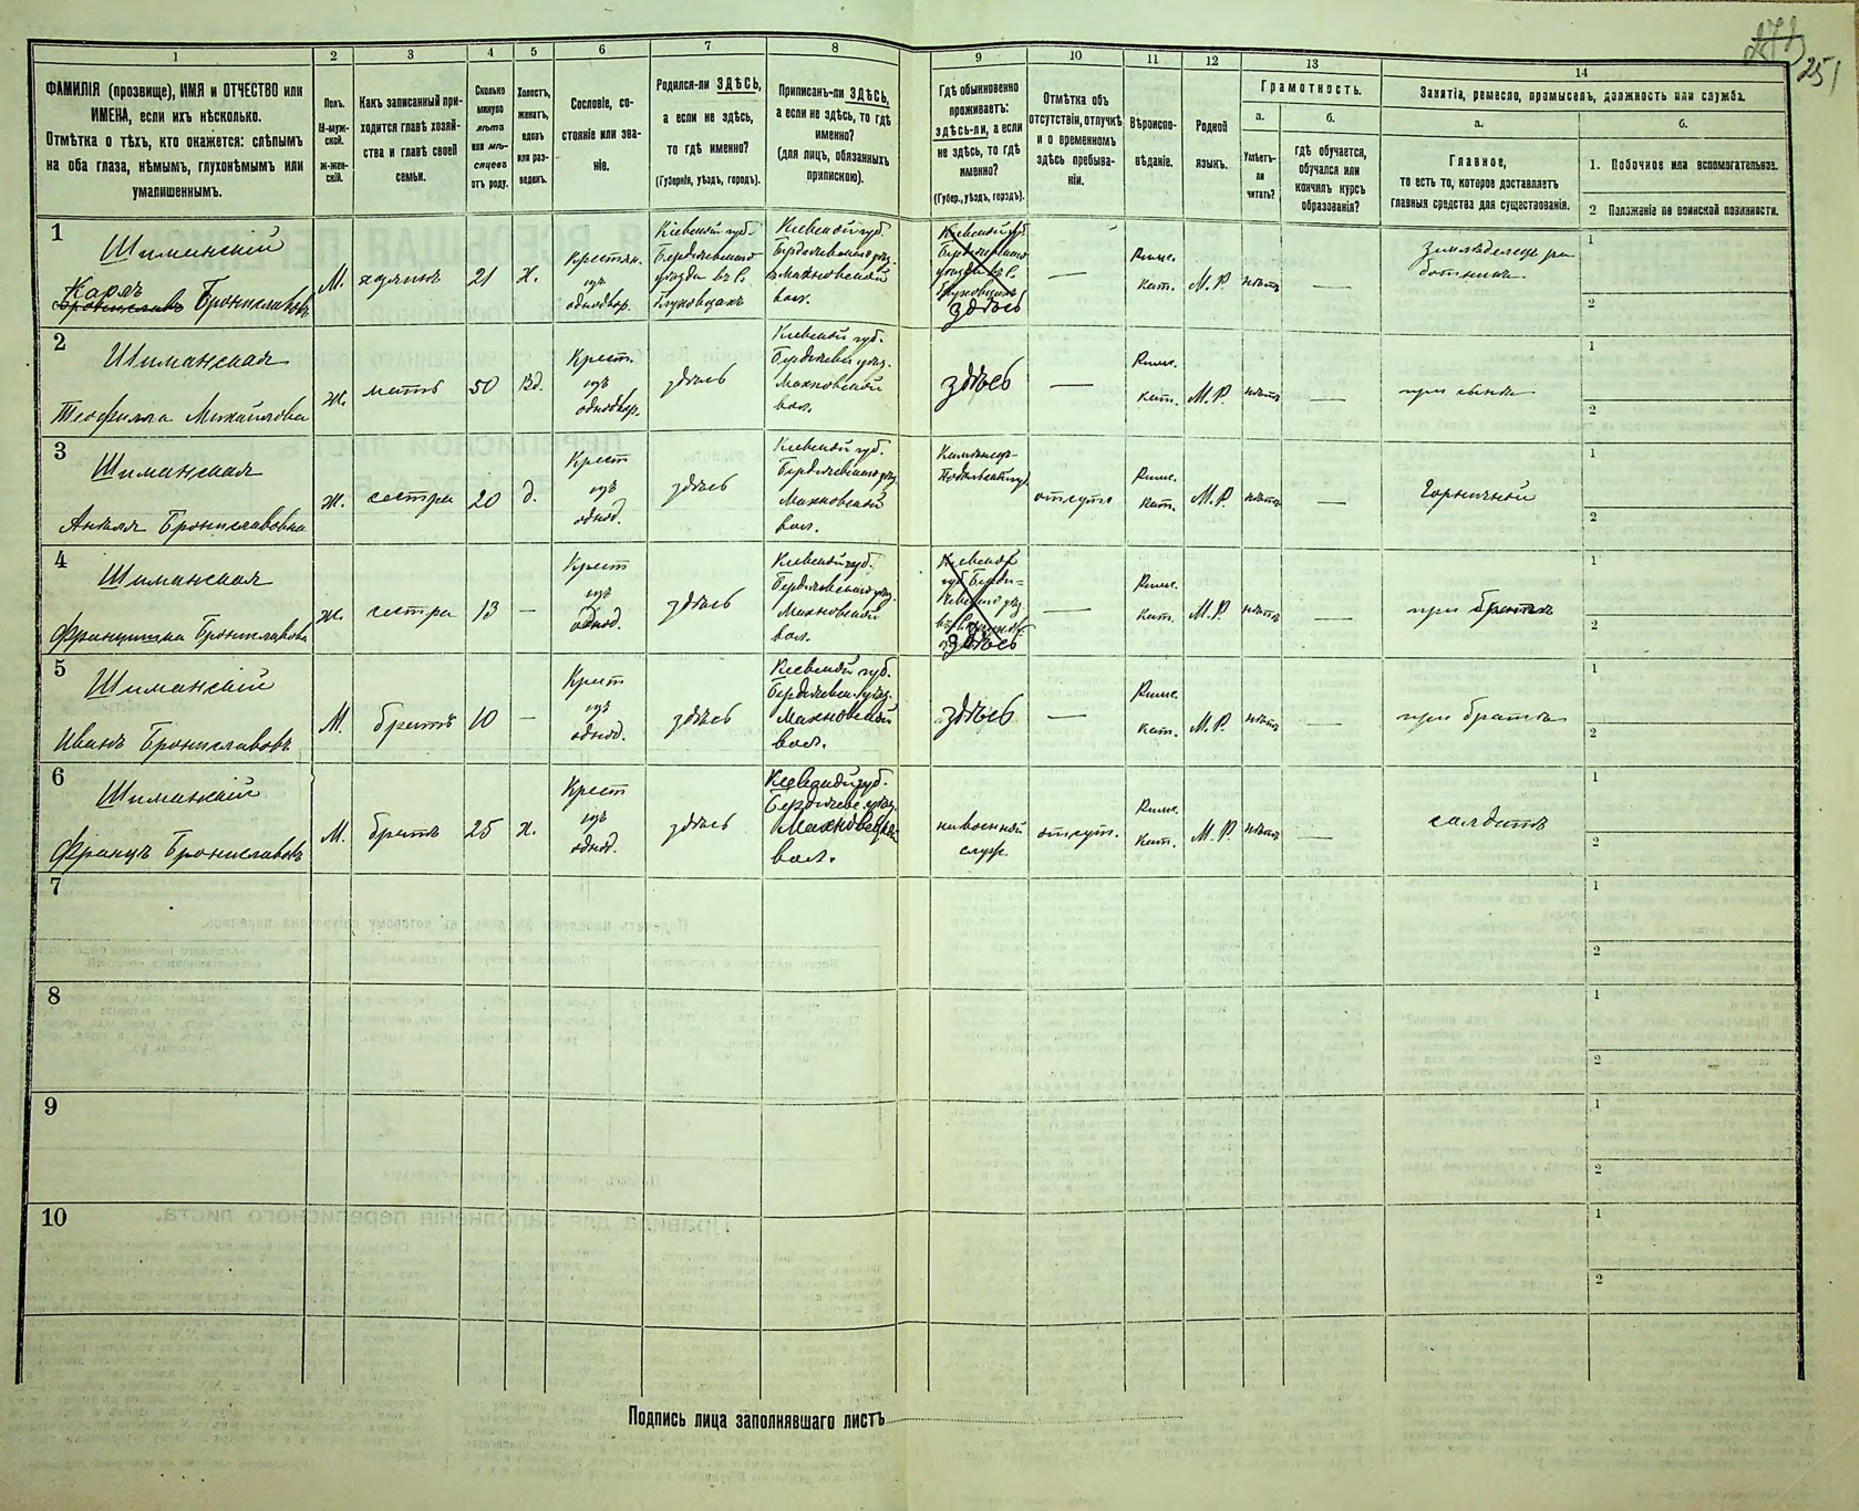 251
1 2 3 4 5 6 7 8 9 10 11 12 13 14
ФАМИЛІЯ (прозвище), ИМЯ и ОТЧЕСТВО или
ИМЕНА, если ихъ нѣсколько.
Отмѣтка о тѣхъ, кто окажется: слѣпымъ
на оба глаза, нѣмымъ, глухонѣмымъ или
умалишеннымъ.
Полъ.
М-муж-
ской.
ж-жен-
скій.
Какъ записанный при-
ходится главѣ хозяй-
ства и главѣ своей
семьи.
Сколько
минуло
лѣтъ
или мѣ-
сяцевъ
отъ роду.
Холостъ,
женатъ,
вдовъ
или раз-
веденъ.
Сословіе, со-
стояніе или зва-
ніе.
Родился-ли ЗДѢСЬ,
а если не здѣсь,
то гдѣ именно?
(Губернія, уѣздъ, городъ).
Приписанъ-ли ЗДѢСЬ,
а если не здѣсь, то гдѣ
именно?
(для лицъ, обязанныхъ
припискою).
Гдѣ обыкновенно
проживаетъ:
здѣсь-ли, а если
не здѣсь, то гдѣ
именно?
(Губер., уѣздъ, городъ).
Отмѣтка объ
отсутствіи, отлучкѣ
и о временномъ
здѣсь пребыва-
ніи.
Вѣроиспо-
вѣданіе.
Родной
языкъ.
Грамотность.
а.
Умѣетъ-
ли
читать?
б.
гдѣ обучается,
обучался или
кончилъ курсъ
образованія?
Занятія, ремесло, промыселъ, должность или служба.
а.
Главное,
то есть то, которое доставляетъ
главныя средства для существованія.
б.
1. Побочное или вспомогательное.
2 Положеніе по воинской повинности.
1
Шиманскій
Карлъ
Брониславъ Брониславовъ
М.
хозяинъ
21
х.
Крестян.
изъ
однодвор.
Кіевской губ.
Бердичевскаго
уѣзда въ с.
Глуховцахъ
Кіевской губ
Бердичевскаго уѣз.
Махновской
вол.
Кіевской губ.
Бердичевскаго
уѣзда въ с.
Глуховцахъ
здѣсь
—
Римс.
Кат.
М.Р.
нѣтъ
—
Земледелецъ ра
ботникъ
1
2
2
Шиманская
Теофилла Михайлова
ж.
мать
50
Вд.
Крест.
изъ
однодвор.
здѣсь
Кіевской губ.
Бердичевск уѣз.
Махновской
вол.
здѣсь
—
Римс.
Кат.
М.Р.
нѣтъ
—
при сынѣ
1
2
3
Шиманская
Анѣля Брониславовна
ж.
сестра
20
д.
Крест
изъ
однод.
здѣсь
Кіевской губ.
Бердичевскаго уѣз
Махновской
вол.
Каменецъ-
Подольскій
отсутс
Римс.
Кат.
М.Р.
нѣтъ
—
Горничной
1
2
4
Шиманская
Францишка Брониславова
ж.
сестра
13
—
Крест
изъ
однод.
здѣсь
Кіевской губ.
Бердичевскаго уѣз.
Махновской
вол.
Кіевской
губ. Берди=
чевскаго уѣз.
здѣсь
—
Римс.
Кат.
М.Р.
нѣтъ
—
при братѣ
1
2
5
Шиманскій
Иванъ Брониславовъ
М.
братъ
10
—
Крест
изъ
однод.
здѣсь
Кіевской губ.
Бердичевск. уѣз.
Махновской
вол.
здѣсь
—
Римс.
Кат.
М.Р.
нѣтъ
—
при братѣ
1
2
6
Шиманскій
Францъ Брониславовъ
М.
братъ
25
х.
Крест
изъ
однод.
здѣсь
Кіевской губ.
Бердичевс. уѣз.
Махновской
вол.
на военной
служ.
отсут.
Римс.
Кат.
М.Р.
нѣтъ
—
солдатъ
1
2
7
1
2
8
1
2
9
1
2
10
1
2
Подпись лица заполнявшаго листъ